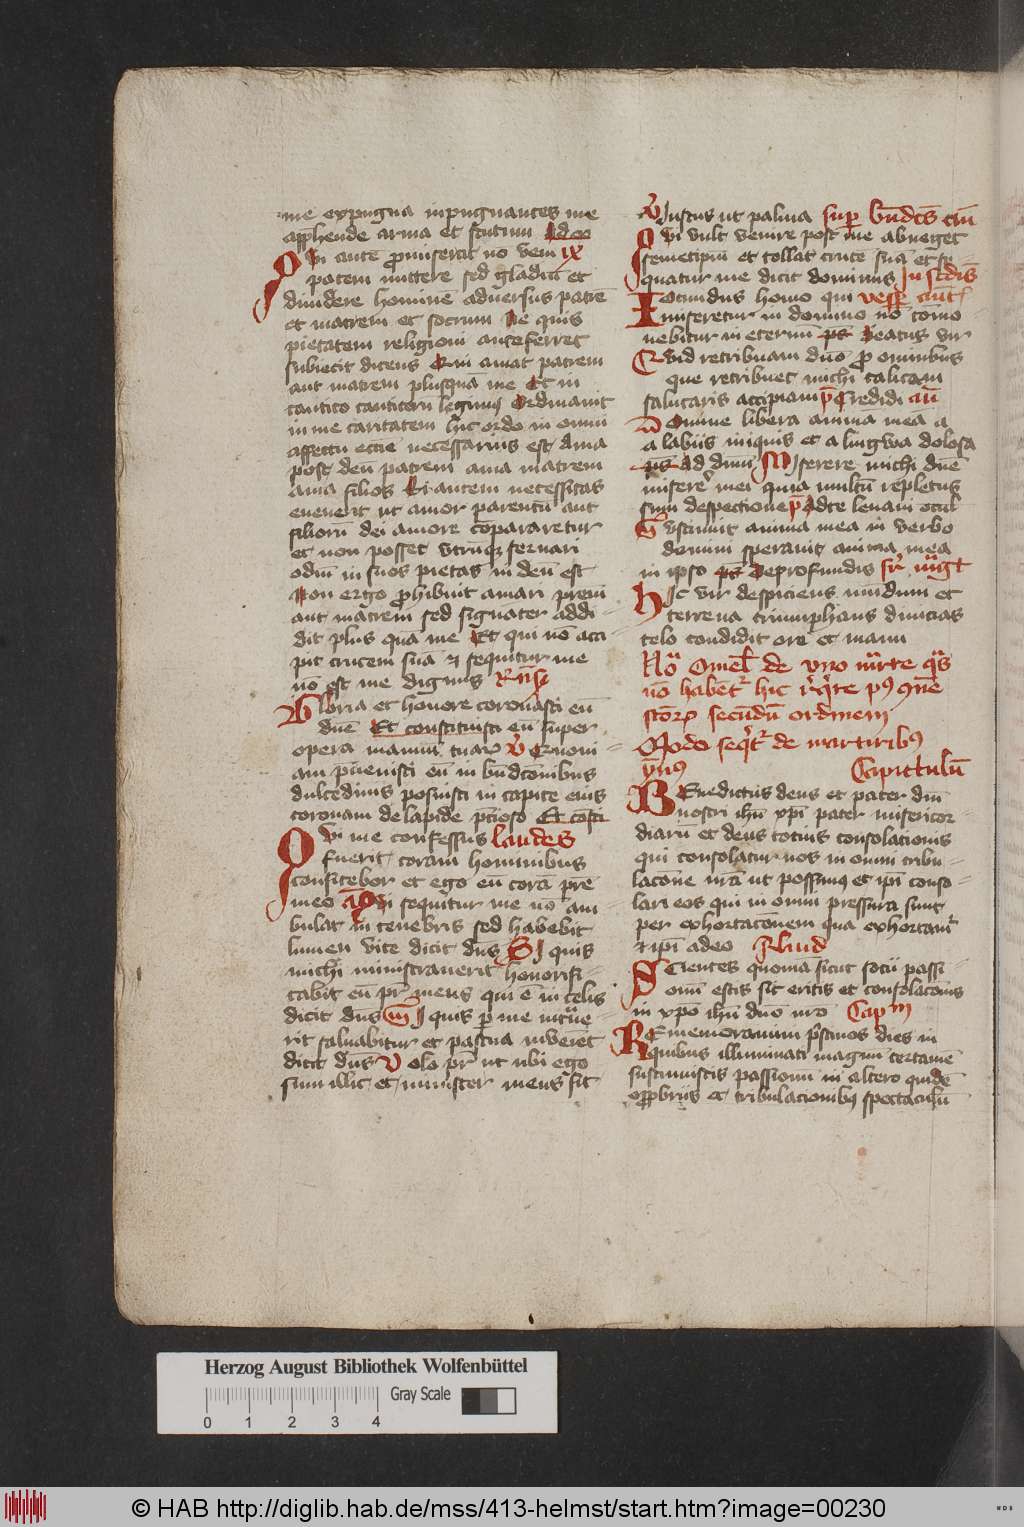 me expugna inpugnantes me
apphende arma et scutum Ideo
Qui ante promiserat nō veni ix
patem mittere sed gladiū et
diuidere hominē aduersus patrē
et matrem et socrum Ne quis
pietatem religioni anteferret
subiecit dicens Qui amat patrem
aut matrem plusquā me Et in
cantico canticorū legimus Ordinauit
in me caritatem Hic ordo in omni
affectu eccie necessarius est Ama
post deū patrem ama matrem
ama filios Si autem necessitas
euenerit ut amor parentū aut
filiorū dei amore cōpararetur
et non posset vtrūqz seruari
odiū in suos pietas in deū est
Non ergo prohibuit amari prem
aut matrem sed signater addi-
dit plus quā me Et qui nō acci
pit crucem suā et sequitur me
nō est me dignus
Gloria et honore coronasti eū
dnē Et constituisti eū super
opera manuū tuarz V Quoni
am puenisti eū in bndcōnibus
dulcedinis posuisti in capite eius
coronam de lapide pcioso Et cōsti
Qui me confessus laudes
fuerit coram hominibus
confitebor et ego eū corā prē
meo añ Qui sequitur me nō am
bulat in tenebris sed habebit
lumen vite dicit dns Si quis
michi ministrauerit honorifi-
cabit eū pr meus qui ē in celis
dicit dns Si quis p me intue
rit saluabitur et pascua inueniet
dicit dns Volo pr ut ubi ego
sum illic et minister meus sit
V Iustus ut palma sup bndcs añ
Qui vult venire post me abneget
semetipm et tollat crucē suā et se
quatur me dicit dominus In scdis
Iocundus homo qui vesper añt
miseretur in domino nō cōmo-
uebitur in eternū ps Beatus vir
Quid retribuam dno pro omnibus
que retribuet michi calicem
salutaris accipiam ps Credidi añ
Domine libera animā meā a
a labiis iniquis et a lingwa dolosa
ps Ad dnm Miserere michi dnē
miserē mei quia multū repletus
sum despectione ps Ad te leuaui ocul
Sustinuit anima mea in verbo
domini sperauit anima mea
in ipso ps De profundis sr mgt
Hic vir despiciens mūdum et
terrena triumphans diuicias
celo condidit ore et manu
No Omel de vno mrte
nō habēt hic
scōrz secūdū ordinem
Modo seqt de martiribus
Capittulū
Benedictus deus et pater dni
nostri ihu xpi pater misericor-
diarū et deus totius consolacionis
qui consolatur nos in omni tribu-
lacone nrā ut possimus et ipi conso-
lari eos qui in omni pressura sunt
per exhortacōnem qua exhortamr
et ipi a deo Aliud
Scientes quoniā sicut socii passi-
onū estis sic eritis et consolacōnis
in xpo ihu dno nro Cap m
Rememoramini pstinos dies in
quibus illuminati magnū certamē
sustinuistis passionū in altero quidē
opprobriis et tribulacionibus spectaculū
Herzog August Bibliothek Wolfenbüttel
Gray Scale
0 1 2 3 4
© HAB http://diglib.hab.de/mss/413-helmst/start.htm?image=00230